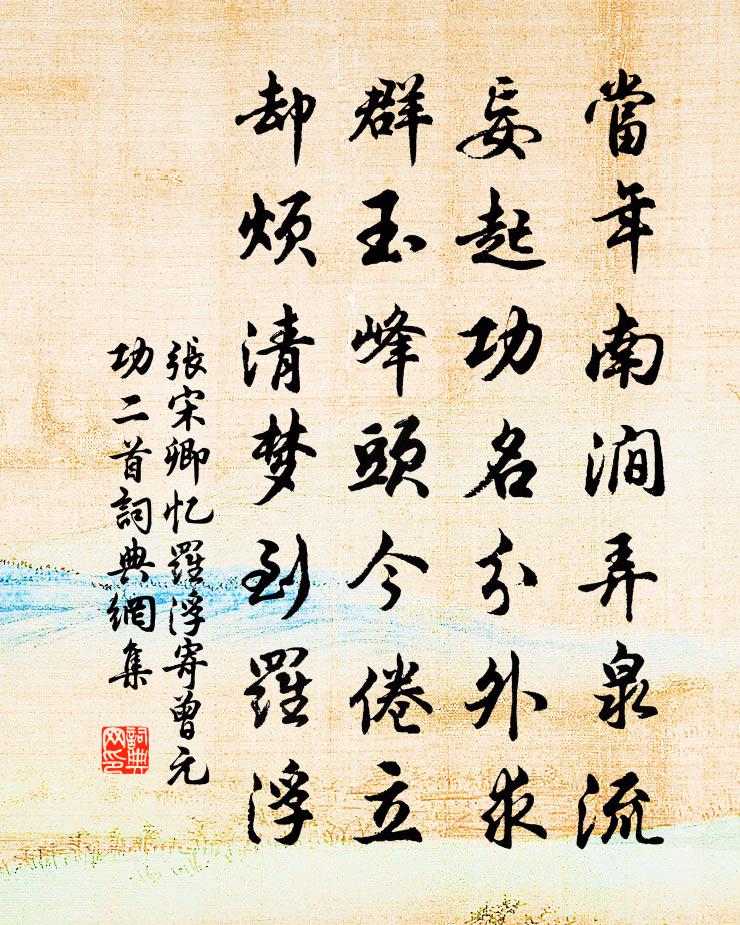 當年南澗弄泉流
妄起功名分外求
群玉峰頭今倦立
却烦清梦到羅浮
張宋卿忆羅浮寄曾元
功二首詞典網集
詞典网印